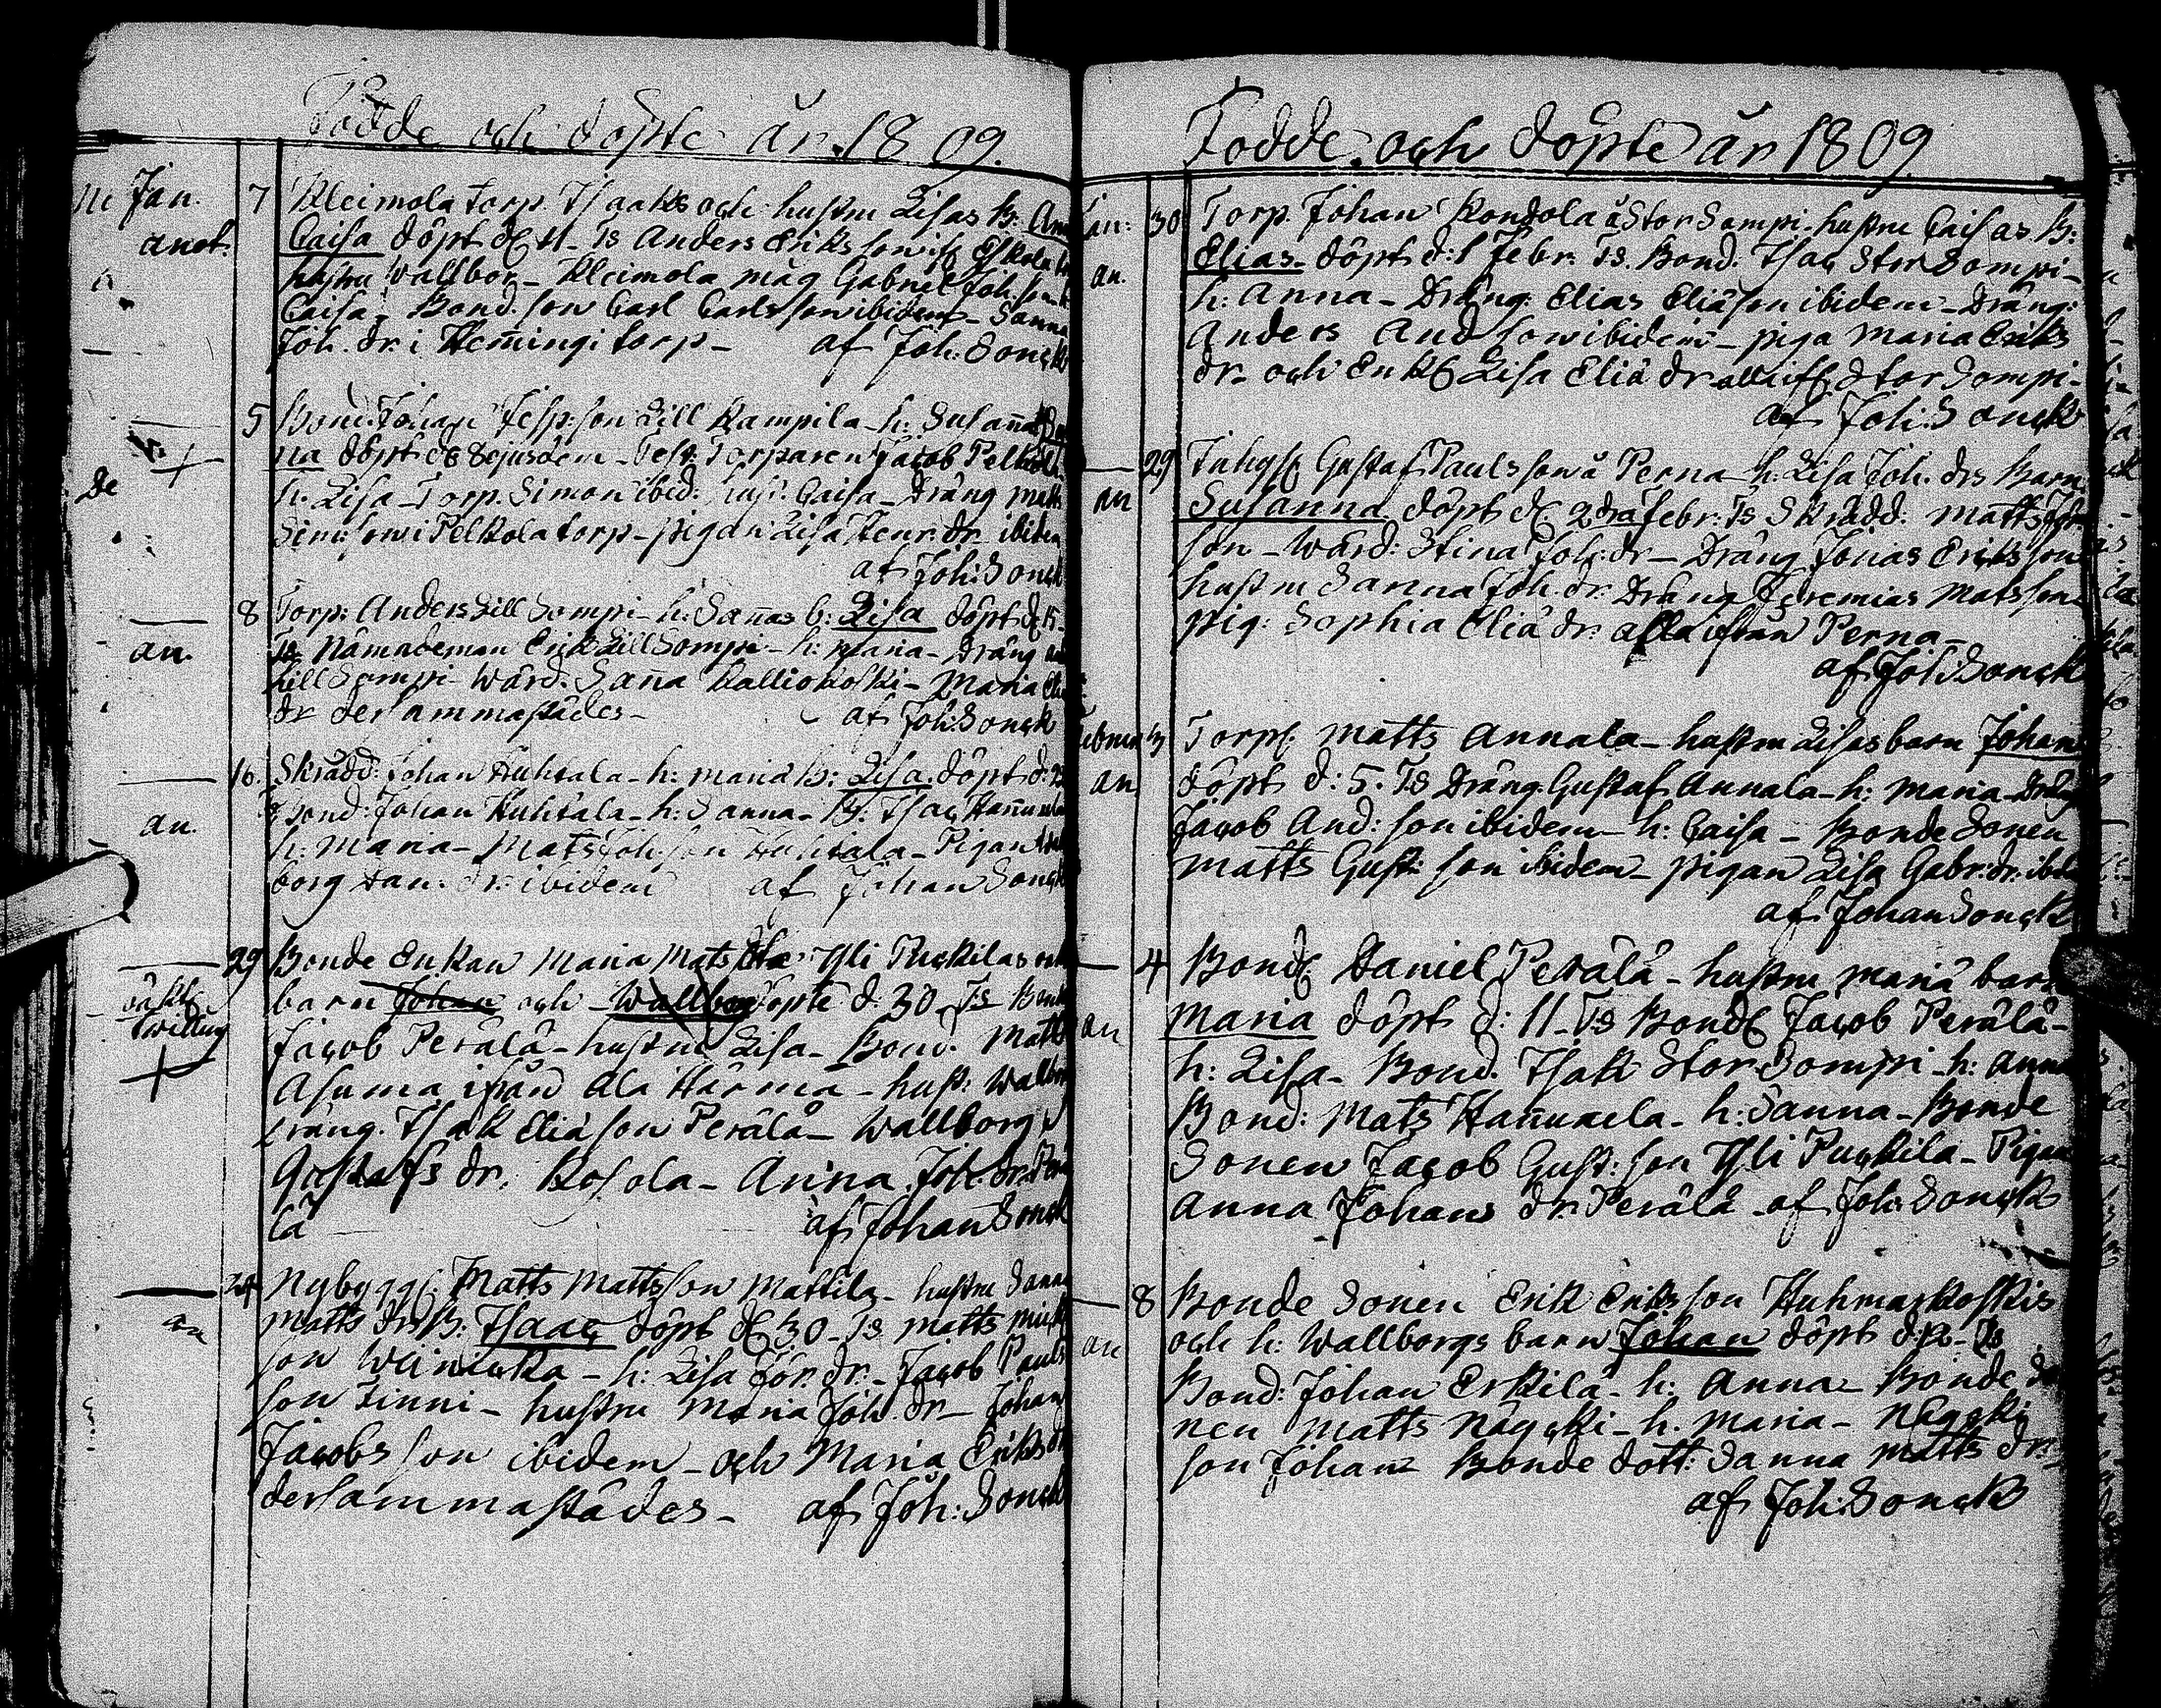 Födde och döpte år 1809.
Jan. 7 Kleimola torp. Isaaks och hustru Lisas B:
anot. Caisa döpt d. 11 - Ts Anders Eriksson if. Eskola
hustru Wallbor - Kleimola måg Gabriel Joh. son
Caisa - Bond. son Carl Carlsson ibidem - Sanna
Joh. dr. i Hemingi torp - af Joh: Sonck
5 Bond. Johan Jesp: son Lill Kampila - h: Susanna
na döpt d. 8 ejusdem - Test. Torparen Jacob Pelkola
h. Lisa - Torp. Simon ibid. hust. Caisa - Dräng Matts
Sim: son i Pelkola torp - pigan Lisa Henr. dr. ibidem
af Joh: Sonck
8 Torp: Anders Lill Sompi - h: Sanas b: Lisa döpt d. 15 -
an. Ts Nämndeman Erik Lill Sompi - h: Maria - Dräng
Lill Sompi - Wärd. Sanna Kalliokoski - Maria
dr dersammastädes - af Joh: Sonck
16. Skrädd: Johan Huhtala - h: Maria B: Lisa. döpt d:
Bond: Johan Huhtala - h: Sanna - B: Isac Hannuxela
an. h: Maria - Mats Joh: son Huhtala - Pigan
borg Dan: dr. ibidem af Johan Sonck
29 Bonde Enkan Maria Mats Yli Puckilas
barn Johan och Wallborg döpte d. 30 Ts Bond
twilling Jacob Perälä - hustru Lisa - Bond. Matts
Asuma ifrån Ala Härmä - hust: Wallborg
dräng. Isak Eliä son Perälä - Wallborg
Gustafs dr. Kosola - Anna Joh. dr. Perä
lä af Johan Sonck
24 Nybygg. Matts Mattsson Mattila - hustru Sanna
an Matts drs B: Isaac döpt d. 30 - Ts Matts
son - h: Lisa dr. - Jacob Pauls
son Finni - hustru Maria Joh. dr - Johan
Jacobsson ibidem - och Maria Eriks dr
dersammastädes - af Joh: Sonck
Födde och döpte år 1809
Jan: 30 Torp. Johan Kondola å Stor Sompi - hustru Caisas B:
an. Elias - döpt d: 1 Febr. Ts. Bond. Isac Stor Sompi -
h: Anna - Dräng: Elias Eliä son ibidem - Dräng:
Anders And son ibidem - piga Maria Eriks
dr - och Enk. Lisa Eliä dr alla if. Stor Sompi -
af Joh: Sonck
29 Inhys. Gustaf Paulsson å Perna - h: Lisa Joh. drs Barn
an Susanna döpt d. 2dra Febr: Ts Skrädd: Matts Joh
son - Wärd: Stina Joh: dr - Dräng Jonas Eriksson
hustru Sanna Joh. dr. Dräng Jeremias Matsson
pig: Sophia Eliä dr. alla ifrån Perna -
af Joh: Sonck
3 Torp. Matts Annala - hustru Lisas barn Johan
an döpt d: 5. Ts Dräng Gustaf Annala - h: Maria - Dräng
Jacob And: son ibidem - h: Caisa - Bonde Sonen
Matts Gust: son ibidem - pigan Lisa Gabr: dr: ibid
af Johan Sonck
4 Bond. Daniel Perälä - hustru Maria barn
an Maria döpt d: 11 - Ts Bond. Jacob Perälä -
h: Lisa - Bond. Isak Stor Sompi - h: Anna
Bond: Mats Hannuxela - h: Sanna - Bonde
Sonen Jacob Gust: son Yli Puckila - Pigan
Anna Johans dr. Perälä af Joh: Sonck
8 Bonde Sonen Erik Eriksson Huhmarkoskis
an och h: Wallborgs barn Johan döpt d: 12 - Ts
Bond: Johan Erkilä - h: Anna - Bonde So
nen Matts Näycki - h. Maria - Näycki
son Johan - Bonde dott: Sanna Matts dr
af Joh: Sonck